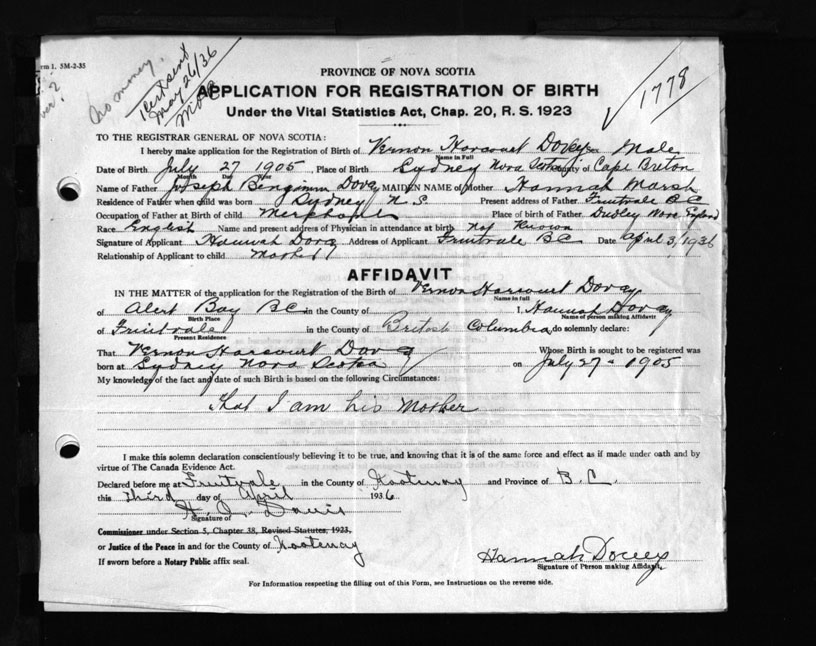 rm 1. 5M-2-35
no money.
1 cert sent
May 26/36
1778
PROVINCE OF NOVA SCOTIA
APPLICATION FOR REGISTRATION OF BIRTH
Under the Vital Statistics Act, Chap. 20, R. S. 1923
TO THE REGISTRAR GENERAL OF NOVA SCOTIA:
I hereby make application for the Registration of Birth of Vernon Harcourt Dovey Male
Name in Full
Date of Birth July 27 1905, Place of Birth Sydney Nova Scotia County of Cape Breton
Month Day Year
Name of Father Joseph Benjamin Dovey MAIDEN NAME of Mother Hannah Marsh
Residence of Father when child was born Sydney N. S. Present address of Father Fruitvale B C
Occupation of Father at Birth of child Place of Birth of Father Dudley England
Race English Name and present address of Physician in attendance at birth Not Known
Signature of Applicant Hannah Dovey Address of Applicant Fruitvale BC Date April 3, 1936
Relationship of Applicant to child Mother
AFFIDAVIT
IN THE MATTER of the application for the Registration of the Birth of Vernon Harcourt Dovey
Name in full
of Alert Bay BC in the County of I, Hannah Dovey
Birth Place Name of person making Affidavit
of Fruitvale in the County of British Columbia, do solemnly declare:
Present Residence
That Vernon Harcourt Dovey Whose Birth is sought to be registered was
born at Sydney Nova Scotia on July 27 1905
My knowledge of the fact and date of such Birth is based on the following Circumstances:
that I am his Mother
I make this solemn declaration conscientiously believing it to be true, and knowing that it is of the same force and effect as if made under oath and by
virtue of The Canada Evidence Act.
Declared before me at Fruitvale in the County of Kootenay and Province of B.C.
this third day of April 1936
Davis
Signature of
Commissioner under Section 5, Chapter 38, Revised Statutes, 1923,
or Justice of the Peace in and for the County of Kootenay
If sworn before a Notary Public affix seal.
Hannah Dovey
Signature of Person making Affidavit,
For Information respecting the filling out of this Form, see Instructions on the reverse side.